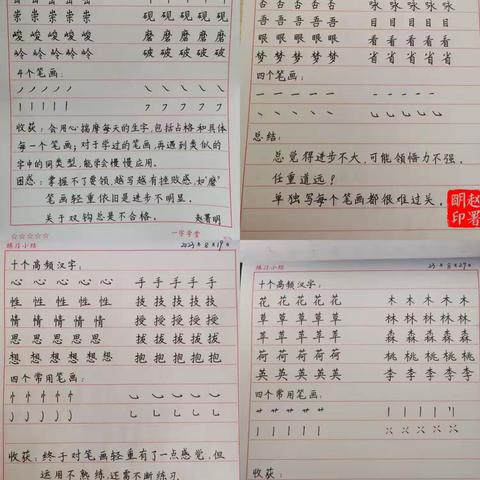 崇 崇 崇 崇 崇 砚 砚 砚 砚 砚
峻 峻 峻 峻 峻 磨 磨 磨 磨 磨
岭 岭 岭 岭 岭 破 破 破 破 破
4个笔画：
收获：会用心揣摩每天的生字，包括占格和具体
每一个笔画；对于学过的笔画，再遇到类似的
字中的同类型，能学会慢慢应用。
困惑：掌握不了要领，越写越有挫败感，如"磨"
笔画轻重依旧是进步不明显。
关于双钩总是不合格。 赵署明
否 否 否 否 否 咏 咏 咏 咏 咏
吾 吾 吾 吾 吾 目 目 目 目 目
眼 眼 眼 眼 眼 看 看 看 看 看
梦 梦 梦 梦 梦 省 省 省 省 省
四个笔画：
总结：
总觉得进步不大，可能领悟力不强。
任重道远？
单独写每个笔画都很难过关。
赵署明印
☆☆☆☆☆ 一字学堂
练习小结 2023年8月19日
十个高频汉字：
心 心 心 心 心 手 手 手 手 手
性 性 性 性 性 技 技 技 技 技
情 情 情 情 情 授 授 授 授 授
思 思 思 思 思 拔 拔 拔 拔 拔
想 想 想 想 想 抱 抱 抱 抱 抱
四个常用笔画：
收获：终于对笔画轻重有了一点感觉，但
运用不熟练，还需不断练习。
练习小结 23年8月29日
十个高频汉字：
花 花 花 花 花 木 木 木 木 木
草 草 草 草 草 林 林 林 林 林
苹 苹 苹 苹 苹 森 森 森 森 森
荷 荷 荷 荷 荷 桃 桃 桃 桃 桃
英 英 英 英 英 李 李 李 李 李
四个常用笔画：
收获：